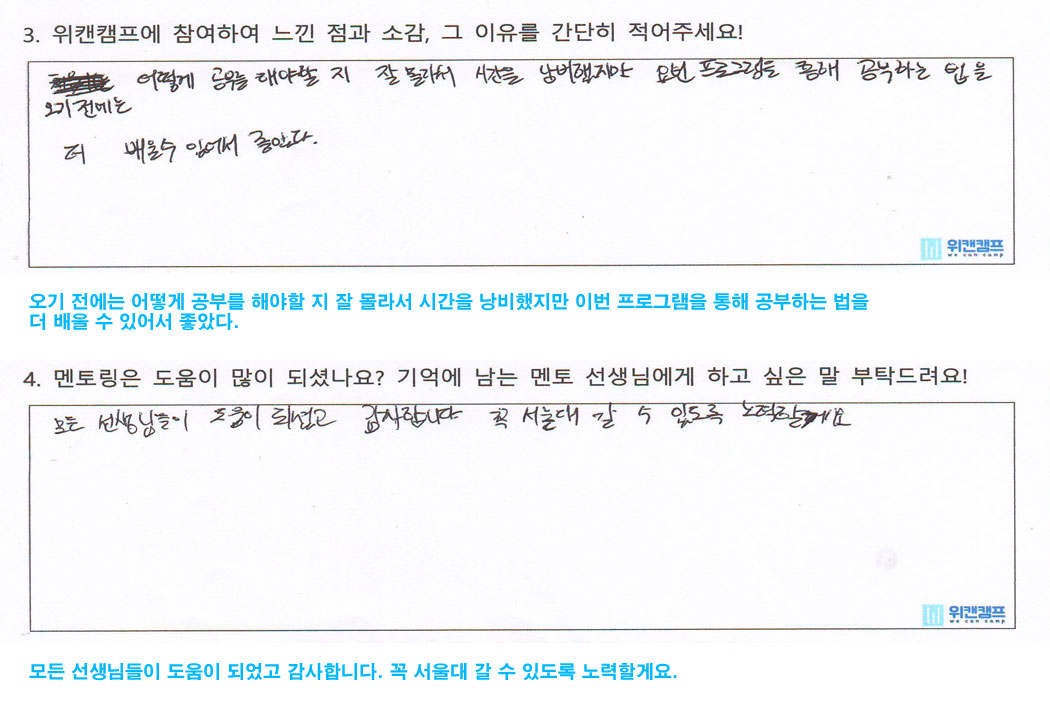 3. 위캔캠프에 참여하여 느낀 점과 소감, 그 이유를 간단히 적어주세요!
어떻게 공부를 해야할 지 잘 몰라서 시간을 낭비했지만 요번 프로그램을 통해 공부하는 법을
오기 전에는
더 배울수 있어서 좋았다.
위캔캠프
we can camp
오기 전에는 어떻게 공부를 해야할 지 잘 몰라서 시간을 낭비했지만 이번 프로그램을 통해 공부하는 법을
더 배울 수 있어서 좋았다.
4. 멘토링은 도움이 많이 되셨나요? 기억에 남는 멘토 선생님에게 하고 싶은 말 부탁드려요!
모든 선생님들이 도움이 되었고 감사합니다 꼭 서울대 갈 수 있도록 노력할게요
위캔캠프
we can camp
모든 선생님들이 도움이 되었고 감사합니다. 꼭 서울대 갈 수 있도록 노력할게요.